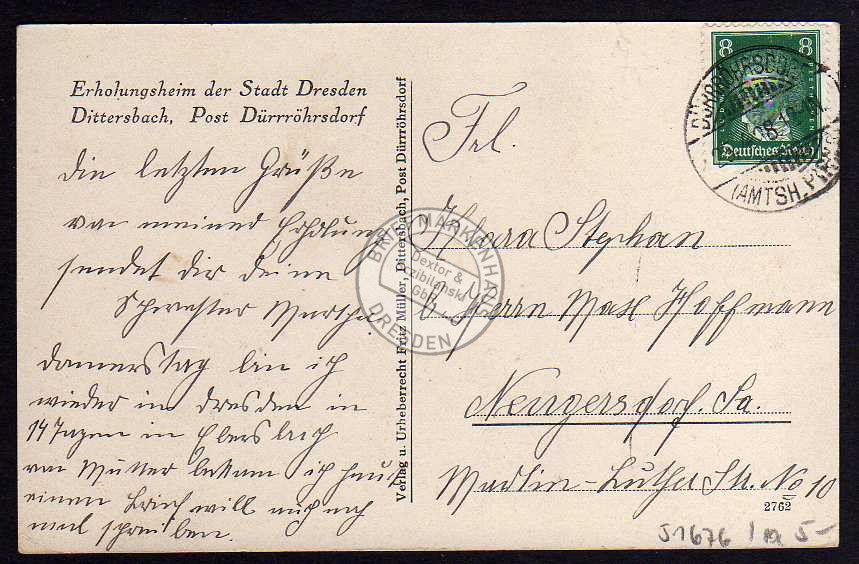 Erholungsheim der Stadt Dresden
Dittersbach, Post Dürrröhrsdorf
die letzten Grüße
von meiner Erholung
sendet dir deine
Schwester
donnerstag bin ich
wieder in dresden in
14 Tagen in Ebersbach
von Mutter bekam ich heute
einen Brief will auch noch
mal schreiben.
Verlag u. Urheberrecht Fritz Müller, Dittersbach, Post Dürrröhrsdorf
8 8
Deutsches Reich
(AMTSH. PIRNA)
Frl.
Stephan
b. Herrn Max Hoffmann
Neugersdorf. Sa.
Martin-Luther Str. No 10
2762
S1676
5-
BRIEFMARKENHAUS
Dextor &
GbR
DRESDEN